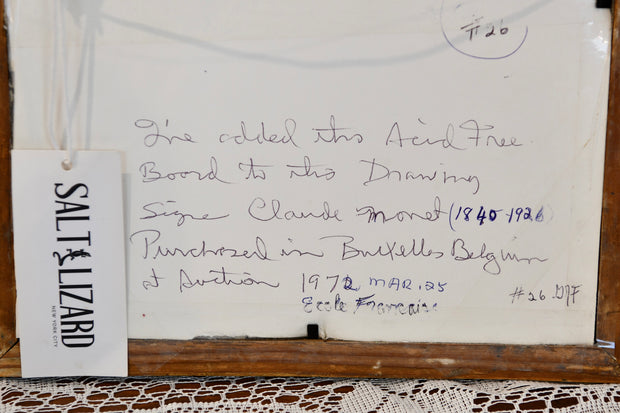 #26
I've added this Acid Free
Board to this Drawing
Signe Claude Monet (1840-1926)
Purchased in Bruxelles Belgium
at Auction 1972 MAR. 25
Ecole Francaise
#26
SALT LIZARD
NEW YORK CITY